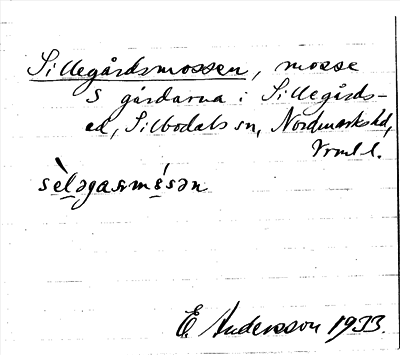 Sillegårdsmossen, mosse
S gårdarna i Sillegårds-
ed, Silbodals sn, Nordmarks hd,
Vrml l.
sèlǝgasmśsǝn
E. Andersson 1933.